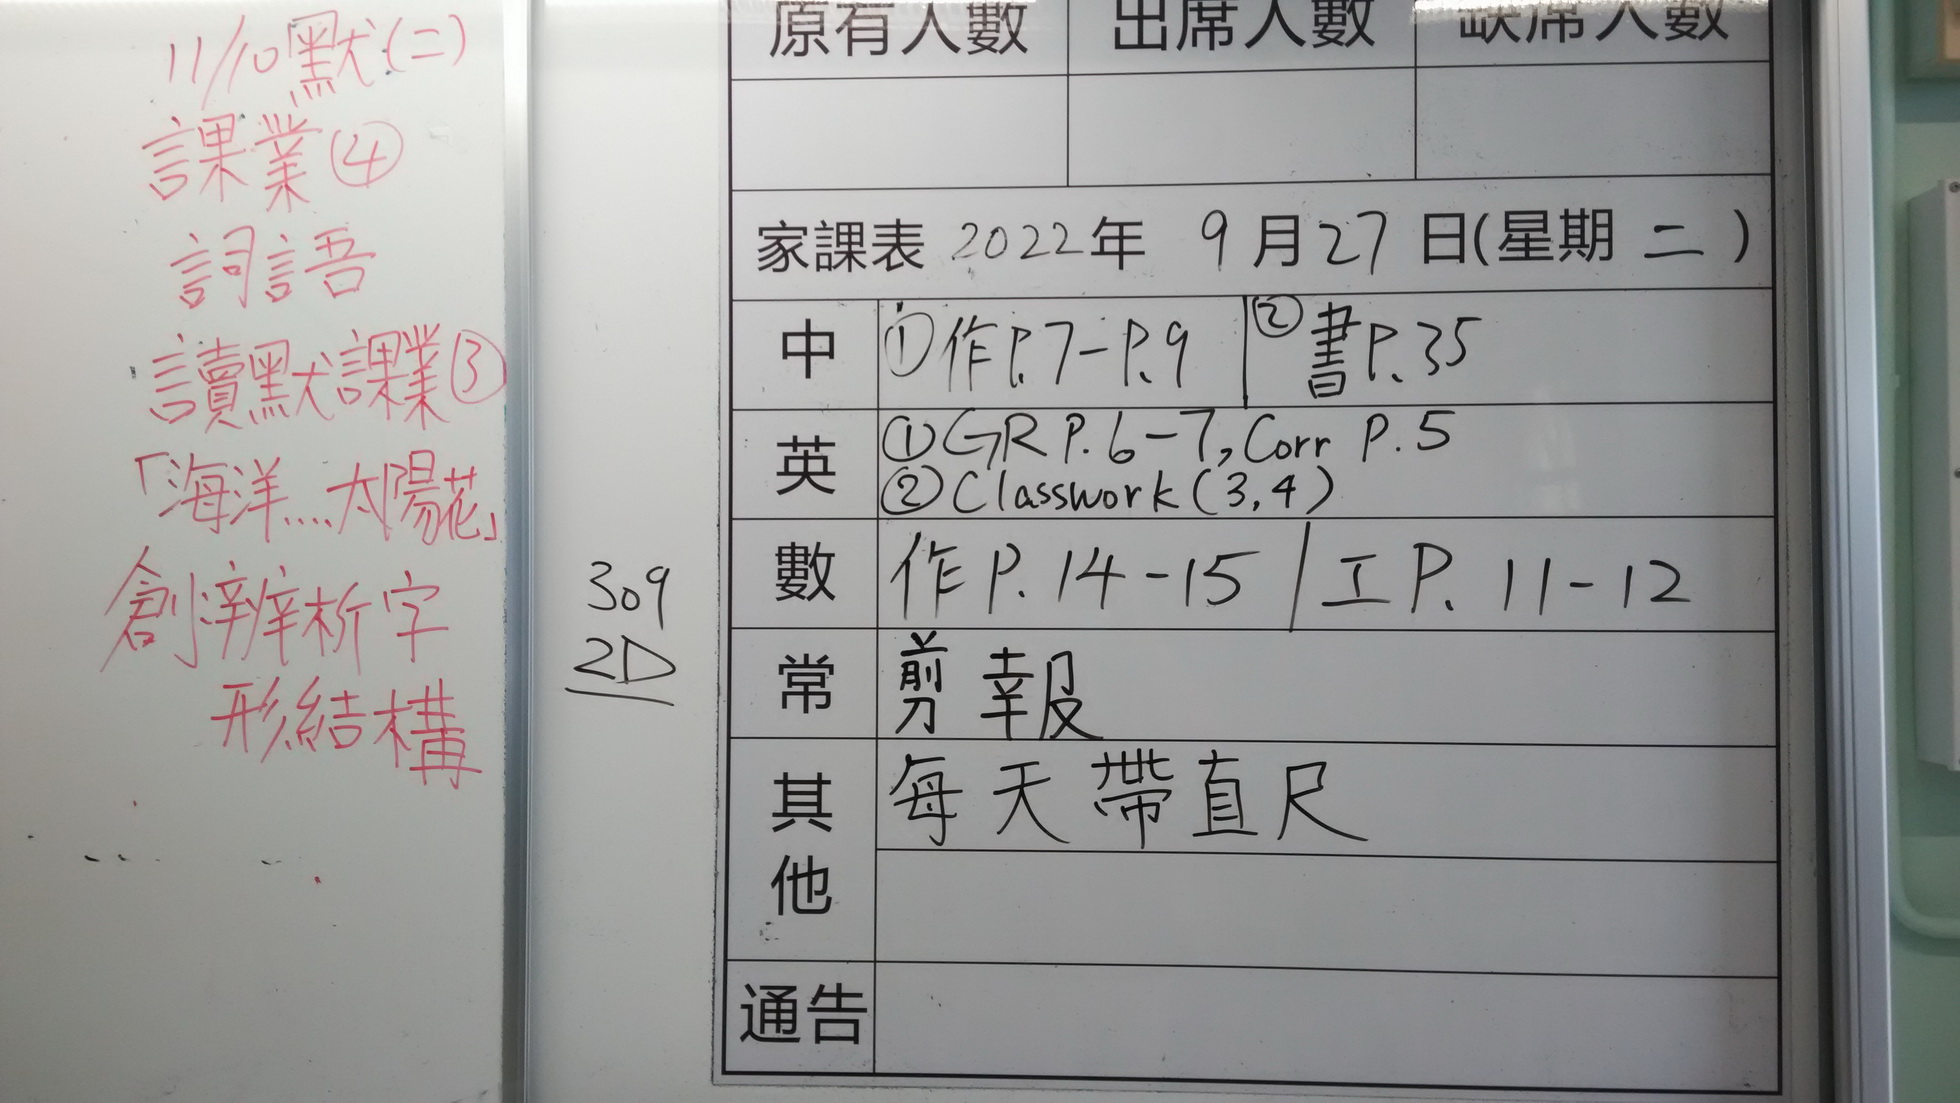 11/10默(二)
課業④
詞語
讀默課業③
「海洋....太陽花」
創辨析字
形結構
309
2D
原有人數 出席人數 缺席人數
家課表 2022年 9月27日(星期 二)
中 ①作P.7-P.9 | ②書P.35
英 ①GR P.6-7, Corr P.5
②Classwork(3,4)
數 作P.14-15 / 工P. 11-12
常 剪報
其他 每天帶直尺
通告